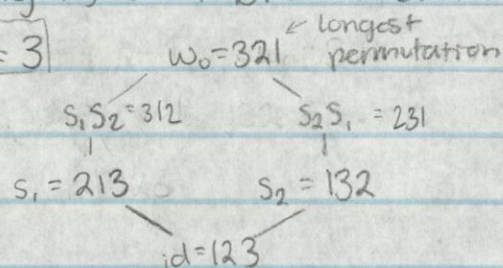 = 3
w₀ = 321 ← longest permutation
s₁s₂ = 312 s₂s₁ = 231
s₁ = 213 s₂ = 132
id = 123